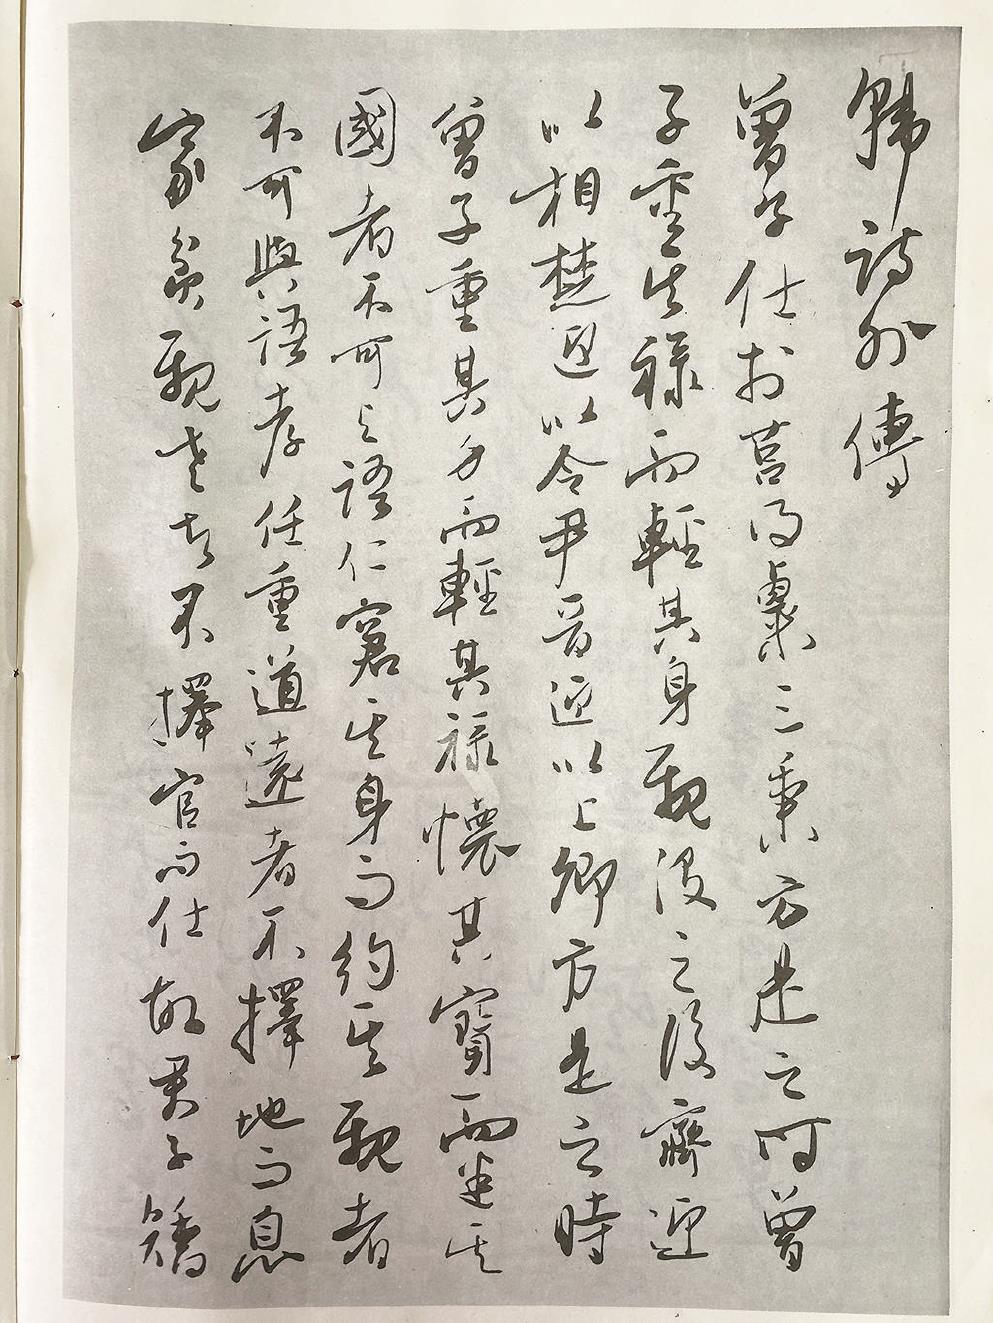 韓詩外傳
曾子仕於莒得粟三秉方是之時曾
子重其祿而輕其身親沒之後齊迎
以相楚迎以令尹晉迎以上卿方是之時
曾子重其身而輕其祿懷其寶而迷其
國者不可與語仁窘其身而約其親者
不可與語孝任重道遠者不擇地而息
家貧親老者不擇官而仕故君子矯